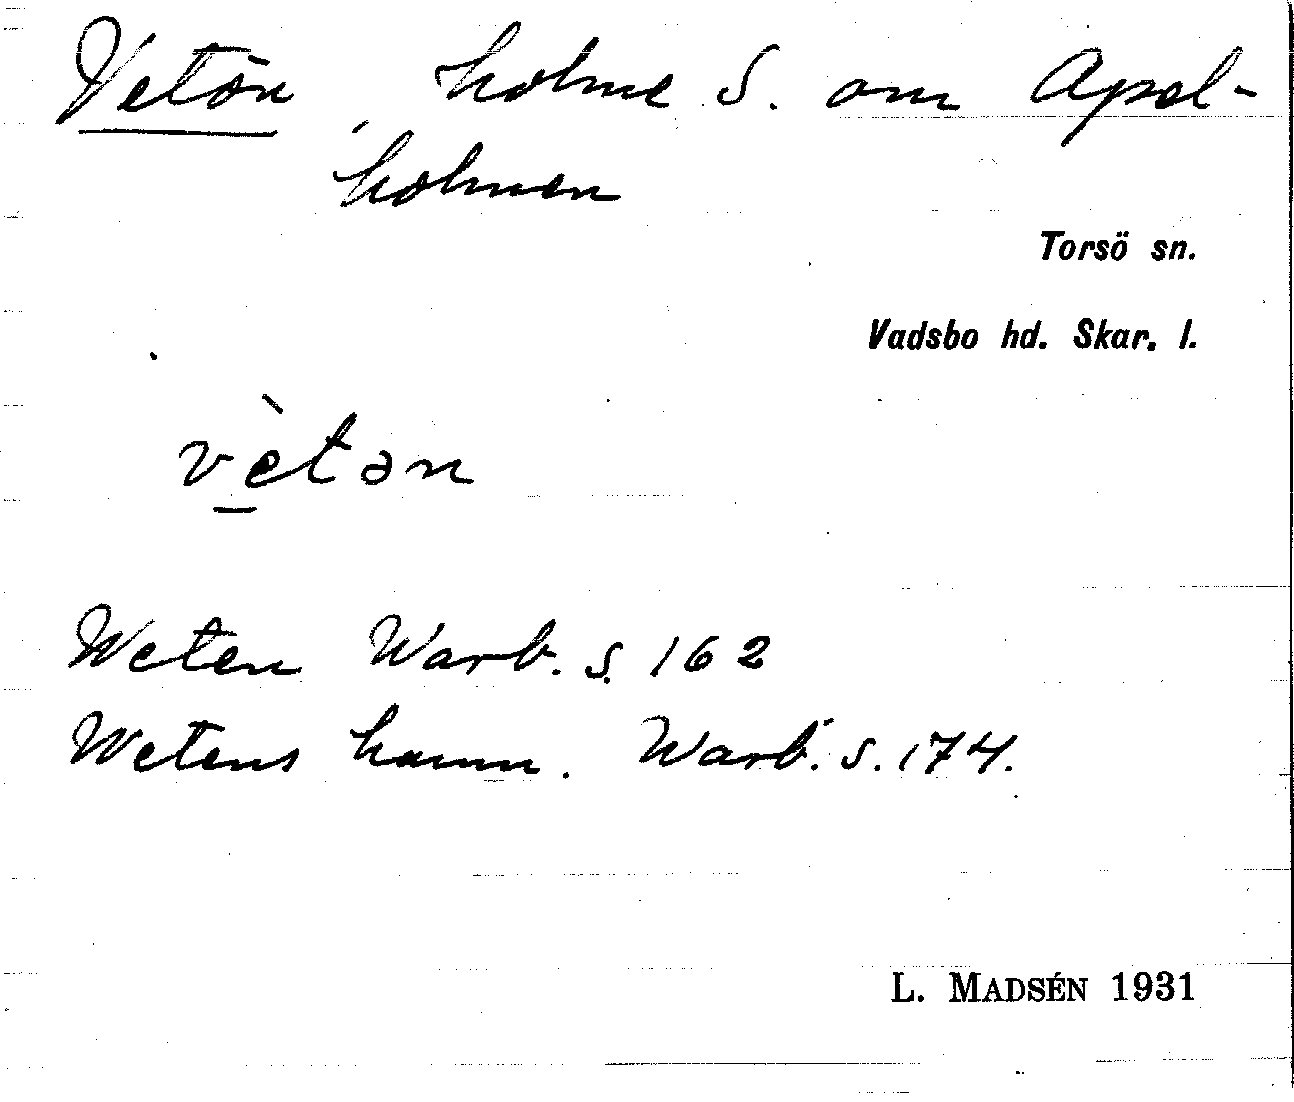 Vetön, holme S. om Apel-
holmen
Torsö sn.
Vadsbo hd. Skar. l.
vètən
Weten Warb. s. 162
Wetens hamn. Warb. s. 174.
L. MADSÉN 1931